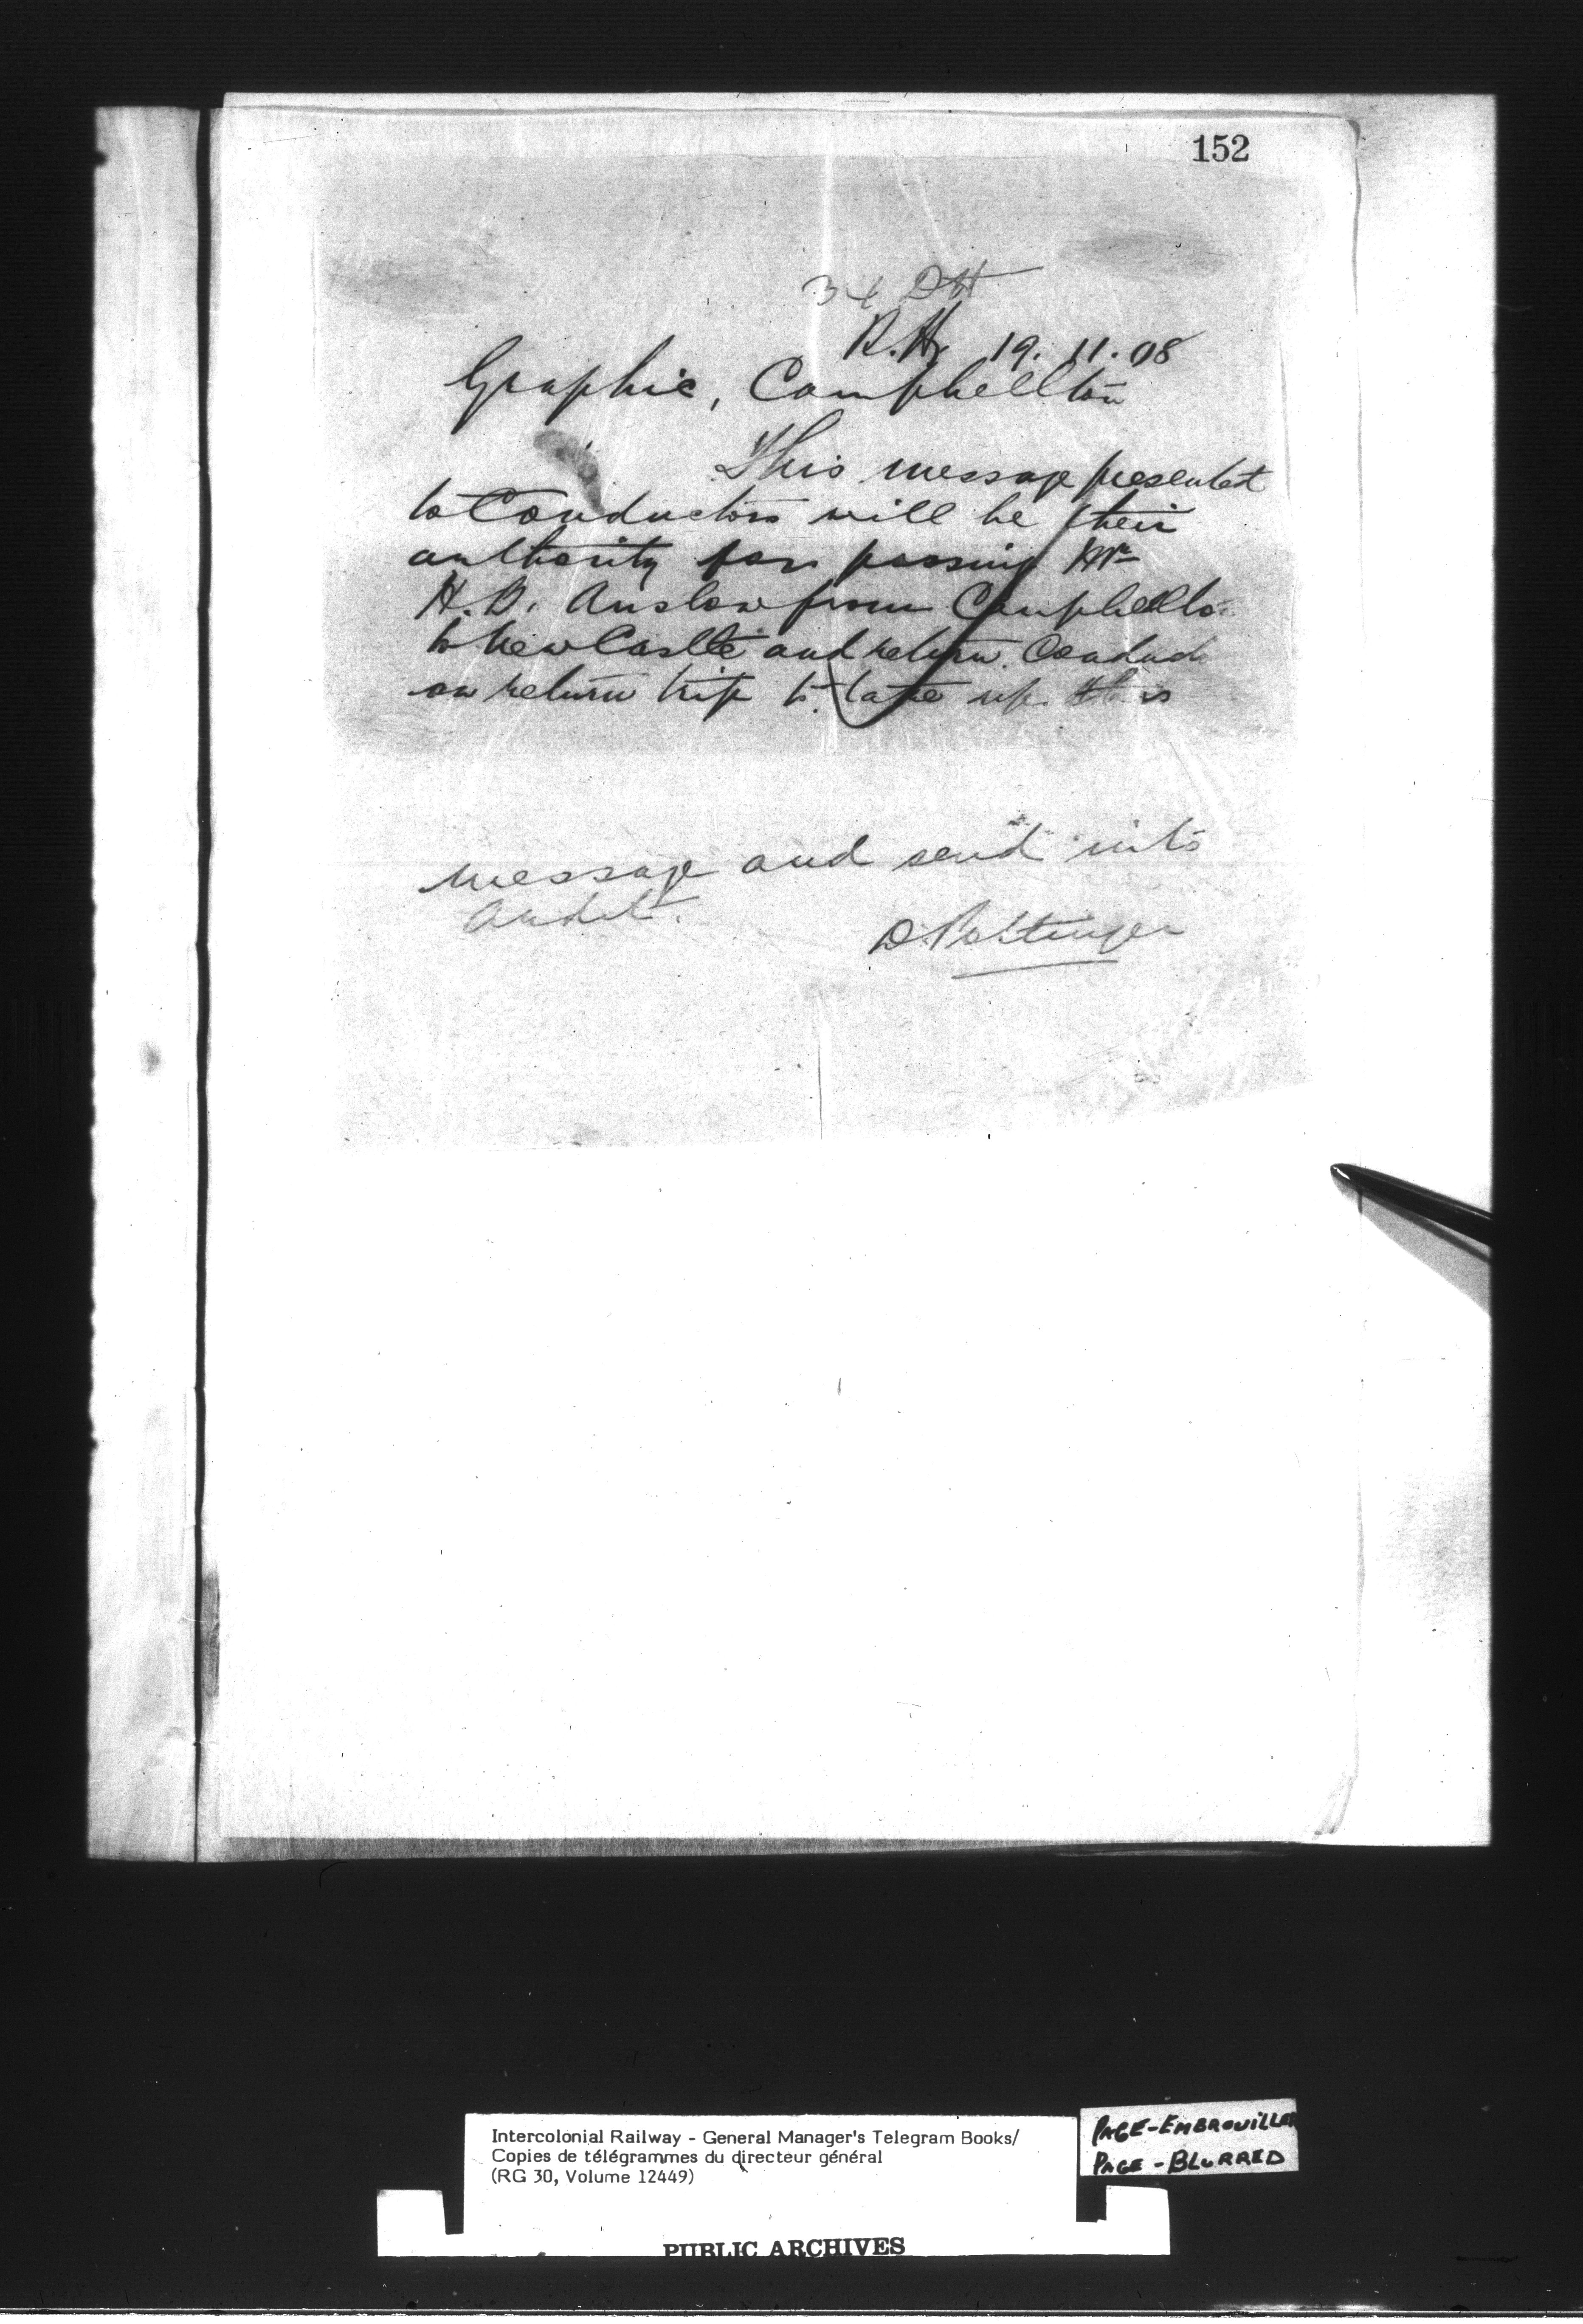 152
34 DH
R.H. 19.11.08
Graphic, Campbellton
This message presented
to Conductors will be their
authority for passing Mr
H.B. Anslow from Campbellto
to NewCastle and return. Conduct
on return trip to take up this
message and send into
Audit.
D. Pottinger
Intercolonial Railway - General Manager's Telegram Books/
Copies de télégrammes du directeur général
(RG 30, Volume 12449)
PAGE-EMBROUILLE
PAGE-BLURRED
PUBLIC ARCHIVES